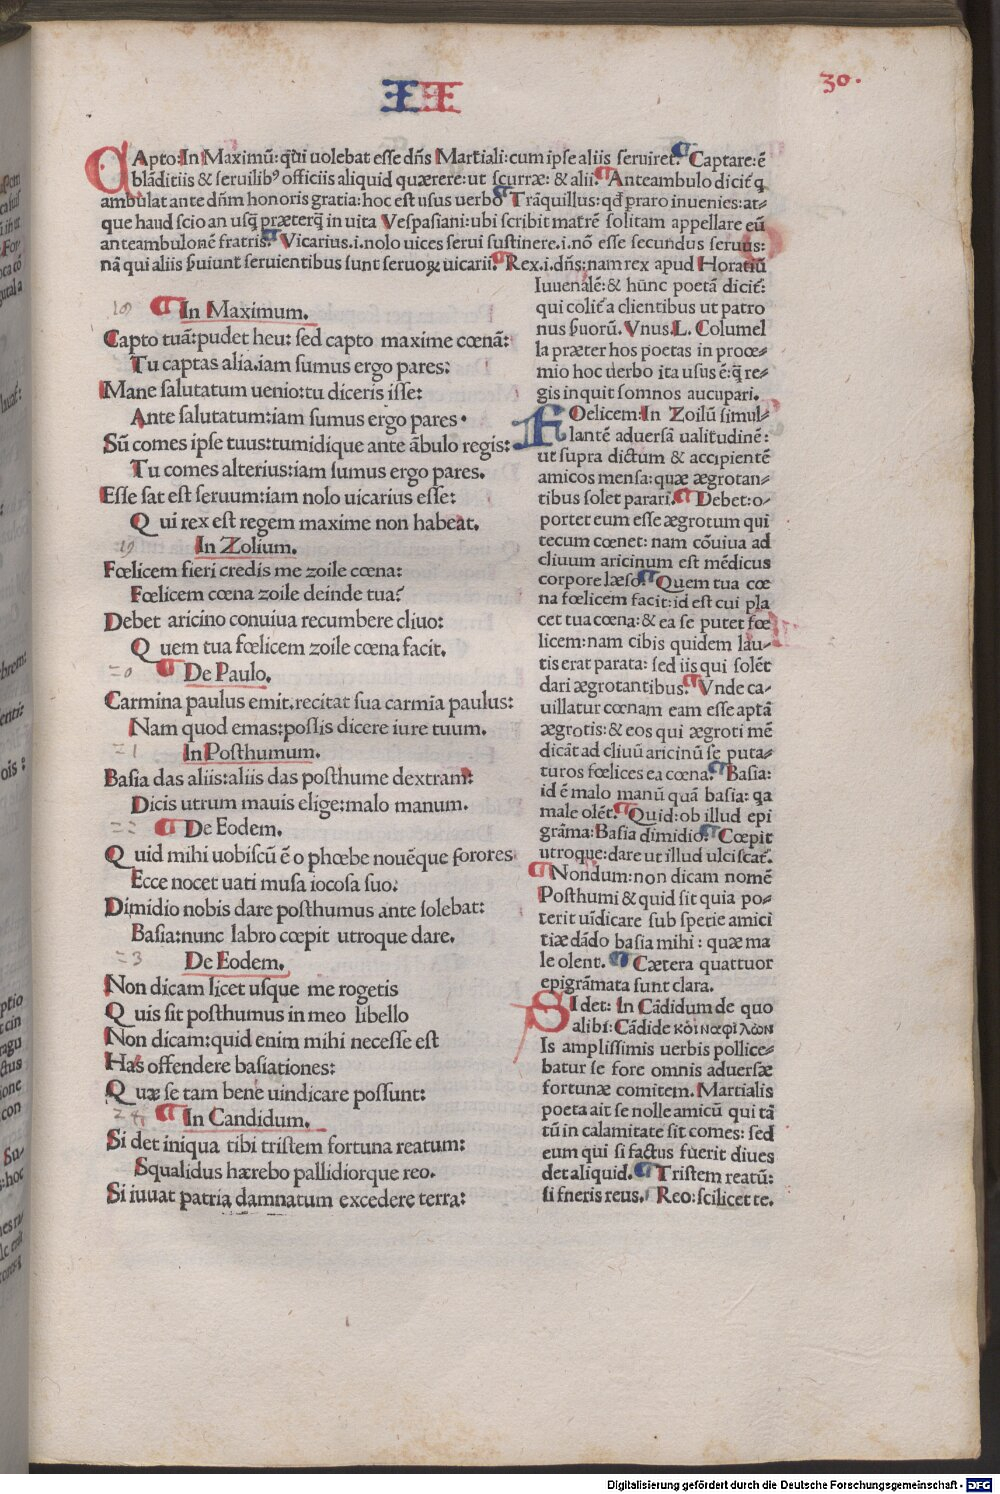 II
30.
CApto: In Maximū: qđi uolebat esse dn̄s Martiali: cum ipse aliis seruiret. Captare: ē
blāditiis & seruilibꝰ officiis aliquid quærere: ut scurræ: & alii. Anteambulo dicit̄ q
ambulat ante dn̄m honoris gratia: hoc est usus uerbo Trāquillus: qđ praro inuenies: at-
que haud scio an usq̄ præterq̄ in uita Vespasiani: ubi scribit matrē solitam appellare eū
anteambulonē fratris. Vicarius .i. nolo uices serui sustinere .i. nō esse secundus seruus:
nā qui aliis ꝑuiunt seruientibus sunt seruoꝝ uicarii. Rex .i. dn̄s: nam rex apud Horatiū
18 In Maximum.
Capto tuā: pudet heu: sed capto maxime cœnā:
Tu captas alia. iam sumus ergo pares:
Mane salutatum uenio: tu diceris isse:
Ante salutatum: iam sumus ergo pares.
Sū comes ipse tuus: tumidique ante ābulo regis:
Tu comes alterius: iam sumus ergo pares.
Esse sat est seruum: iam nolo uicarius esse:
Qui rex est regem maxime non habeat.
19 In Zolium.
Fœlicem fieri credis me zoile cœna:
Fœlicem cœna zoile deinde tua?
Debet aricino conuiua recumbere cliuo:
Quem tua fœlicem zoile cœna facit.
=0 De Paulo.
Carmina paulus emit. recitat sua carmia paulus:
Nam quod emas: possis dicere iure tuum.
=1 In Posthumum.
Basia das aliis: aliis das posthume dextram:
Dicis utrum mauis elige: malo manum.
== De Eodem.
Quid mihi uobiscū ē o phœbe nouēque sorores
Ecce nocet uati musa iocosa suo:
Dimidio nobis dare posthumus ante solebat:
Basia: nunc labro cœpit utroque dare.
=3 De Eodem.
Non dicam licet usque me rogetis
Quis sit posthumus in meo libello
Non dicam: quid enim mihi necesse est
Has offendere basiationes:
Quæ se tam bene uindicare possunt:
24 In Candidum.
Si det iniqua tibi tristem fortuna reatum:
Squalidus hærebo pallidiorque reo.
Si iuuat patria damnatum excedere terra:
Iuuenalē: & hūnc poetā dicit̄:
qui colit̄ a clientibus ut patro
nus ꝑuorū. Vnus. L. Columel
la præter hos poetas in proœ-
mio hoc uerbo ita usus ē: q̄ re-
gis inquit somnos aucupari.
FOelicem: In Zoilū simul-
lantē aduersā ualitudinē:
ut supra dictum & accipientē
amicos mensa: quæ ægrotan-
tibus solet parari. Debet: o-
portet eum esse ægrotum qui
tecum cœnet: nam cōuiua ad
cliuum aricinum est mēdicus
corpore læso. Quem tua cœ
na fœlicem facit: id est cui pla
cet tua cœna: & ea se putet fœ
licem: nam cibis quidem lau-
tis erat parata: sed iis qui solēt
dari ægrotantibus. Vnde ca-
uillatur cœnam eam esse aptā
ægrotis: & eos qui ægroti mē
dicāt ad cliuū aricinū se puta-
turos fœlices ea cœna. Basia:
id ē malo manū quā basia: qa
male olēt. Quid: ob illud epi
grāma: Basia dimidio. Cœpit
utroque: dare ut illud ulciscat̄.
Nondum: non dicam nomē
Posthumi & quid sit quia po-
terit uīdicare sub spetie amici
tiæ dādo basia mihi: quæ ma
le olent. Cætera quattuor
epigrāmata sunt clara.
SI det: In Cādidum de quo
alibi: Cādide κοινα φιλων
Is amplissimis uerbis pollice-
batur se fore omnis aduersæ
fortunæ comitem. Martialis
poeta ait se nolle amicū qui tā
tū in calamitate sit comes: sed
eum qui si factus fuerit diues
det aliquid. Tristem reatū:
si fneris reus. Reo: scilicet te.
Digitalisierung gefördert durch die Deutsche Forschungsgemeinschaft - DFG